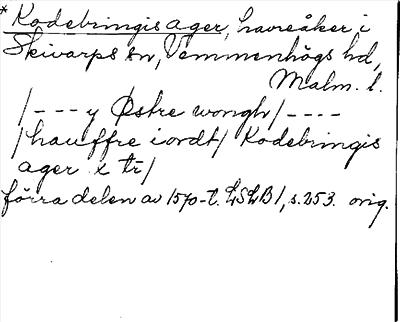 * Kodebringis ager, havreåker i
Skivarps sn, Vemmenhögs hd,
Malm. l.
/--- y Østre wongh/----
/hauffre iordt/ Kodebringis
ager x tr/
förra delen av 1570-t. LSLB1, s. 253. orig.